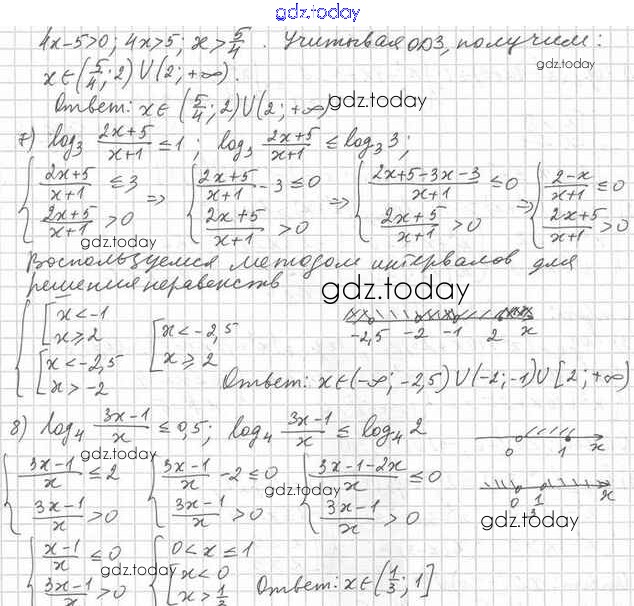 gdz.today
4x-5>0; 4x>5; x>5/4. Учитывая ОДЗ, получим:
gdz.today
x∈(5/4; 2)∪(2; +∞).
Ответ: x∈(5/4; 2)∪(2; +∞)
gdz.today
7) log₃ (2x+5)/(x+1) ≤ 1; log₃ (2x+5)/(x+1) ≤ log₃3;
{ (2x+5)/(x+1) ≤ 3 ⇒ { (2x+5)/(x+1) - 3 ≤ 0 ⇒ { (2x+5-3x-3)/(x+1) ≤ 0 ⇒ { (2-x)/(x+1) ≤ 0
(2x+5)/(x+1) > 0 (2x+5)/(x+1) > 0 (2x+5)/(x+1) > 0 (2x+5)/(x+1) > 0
gdz.today
Воспользуемся методом интервалов для
решения неравенств
gdz.today
{ [ x < -1
x ≥ 2
[ x < -2,5
x > -2
[ x < -2,5
x ≥ 2
-2,5 -2 -1 2 x
Ответ: x∈(-∞; -2,5)∪(-2; -1)∪[2; +∞)
gdz.today
8) log₄ (3x-1)/x ≤ 0,5; log₄ (3x-1)/x ≤ log₄ 2
0 1 x
{ (3x-1)/x ≤ 2 { (3x-1)/x - 2 ≤ 0 { (3x-1-2x)/x ≤ 0
(3x-1)/x > 0 (3x-1)/x > 0 (3x-1)/x > 0
gdz.today
0 1/3 x
gdz.today
{ (x-1)/x ≤ 0 { 0 < x ≤ 1
(3x-1)/x > 0 [ x < 0
x > 1/3
gdz.today
Ответ: x∈(1/3; 1]